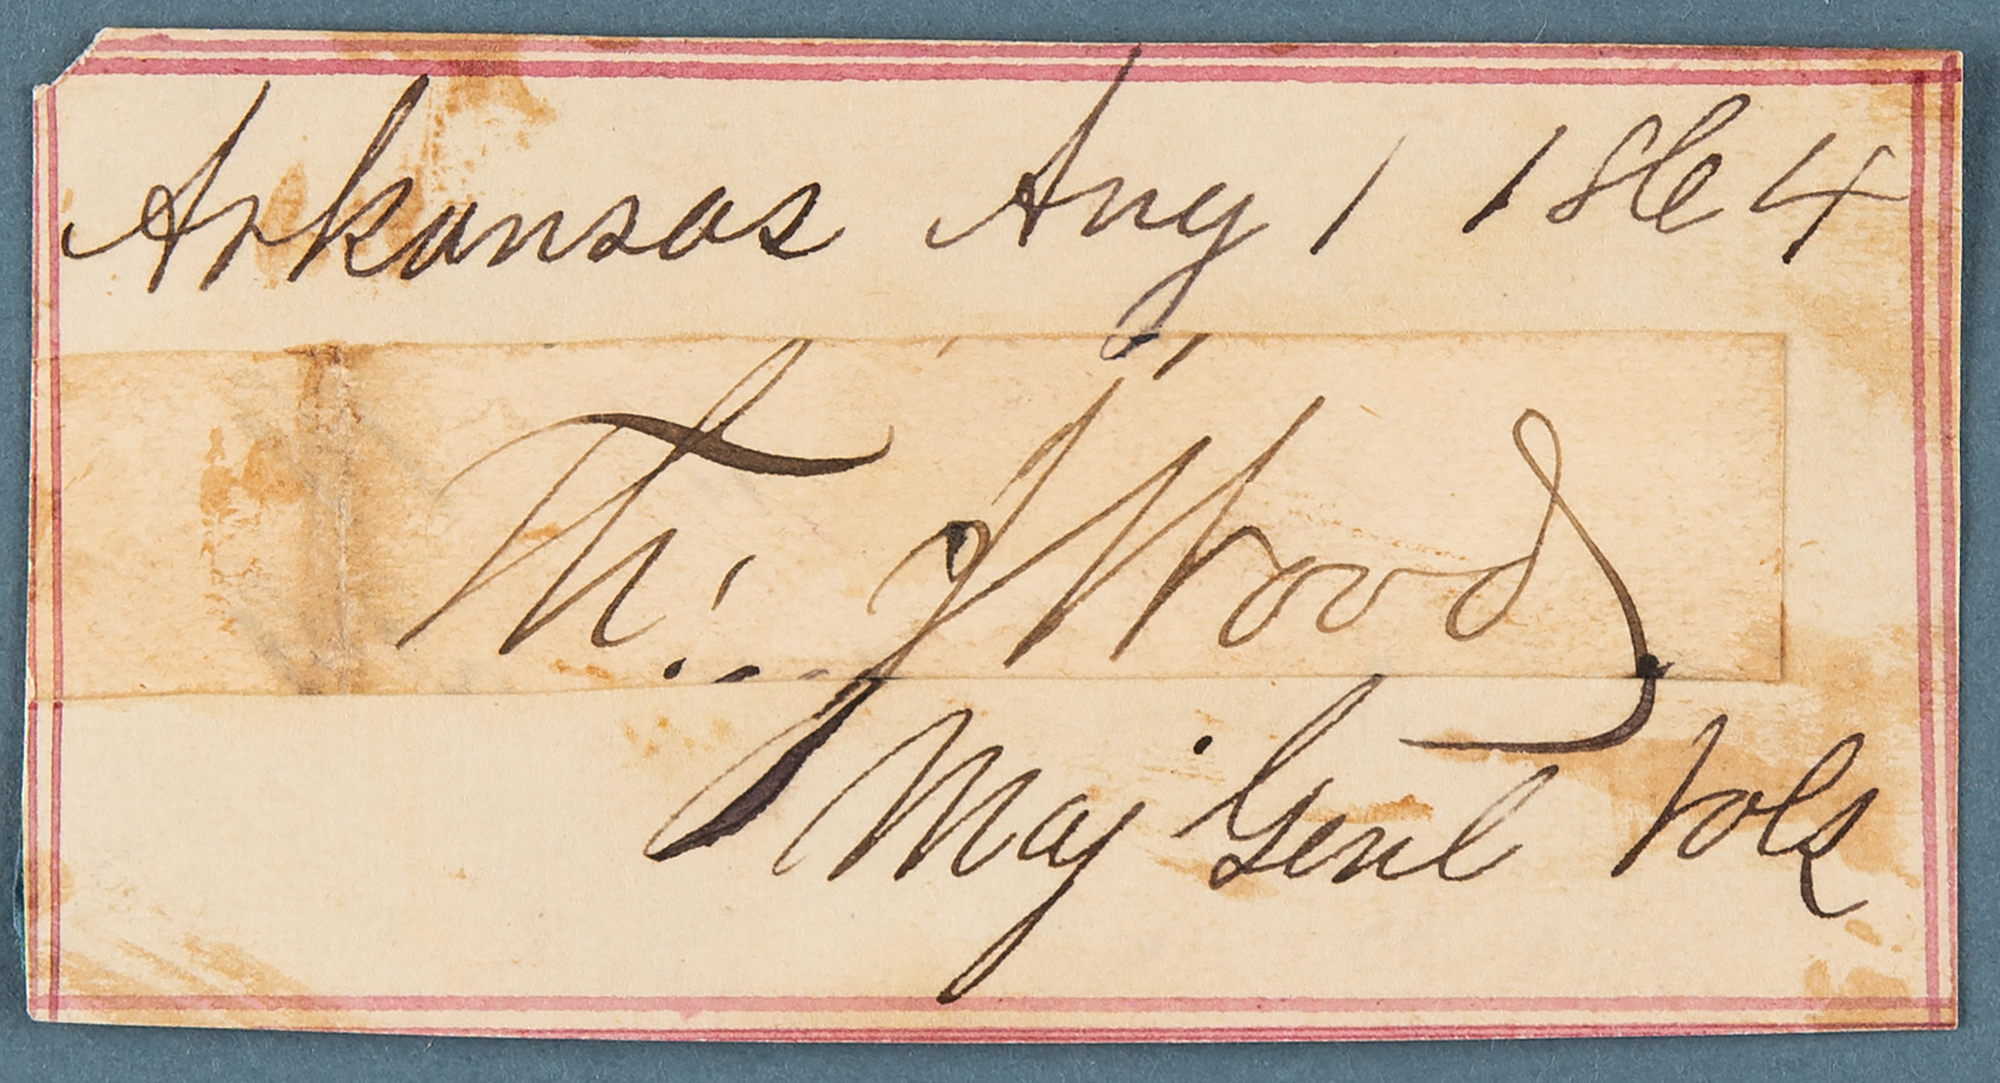 Arkansas Aug 1 1864
Th: J Wood
Maj Genl Vols